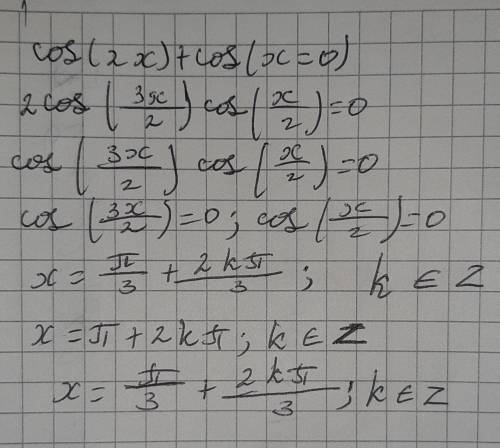 cos(2x)+cos(x=0)
2cos(3x/2) cos(x/2)=0
cos(3x/2) cos(x/2)=0
cos(3x/2)=0; cos(x/2)=0
x=π/3 + 2kπ/3; k∈Z
x=π+2kπ; k∈Z
x=π/3 + 2kπ/3; k∈Z